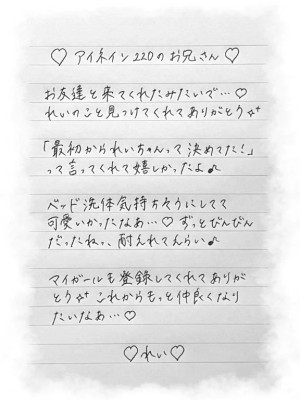 ♡ アイネイン220のお兄さん ♡
お友達と来てくれたみたいで…♡
れいのこと見つけてくれてありがとう
「最初かられいちゃんって決めてた!」
って言ってくれて嬉しかったよ♪
ベッド洗体気持ちそうにしてて
可愛いかったなあ…♡ ずっとびんびん
だったねっ、耐えれてえらい♪
マイガールも登録してくれてありが
とう これからもっと仲良くなり
たいなあ…♡
♡れい♡